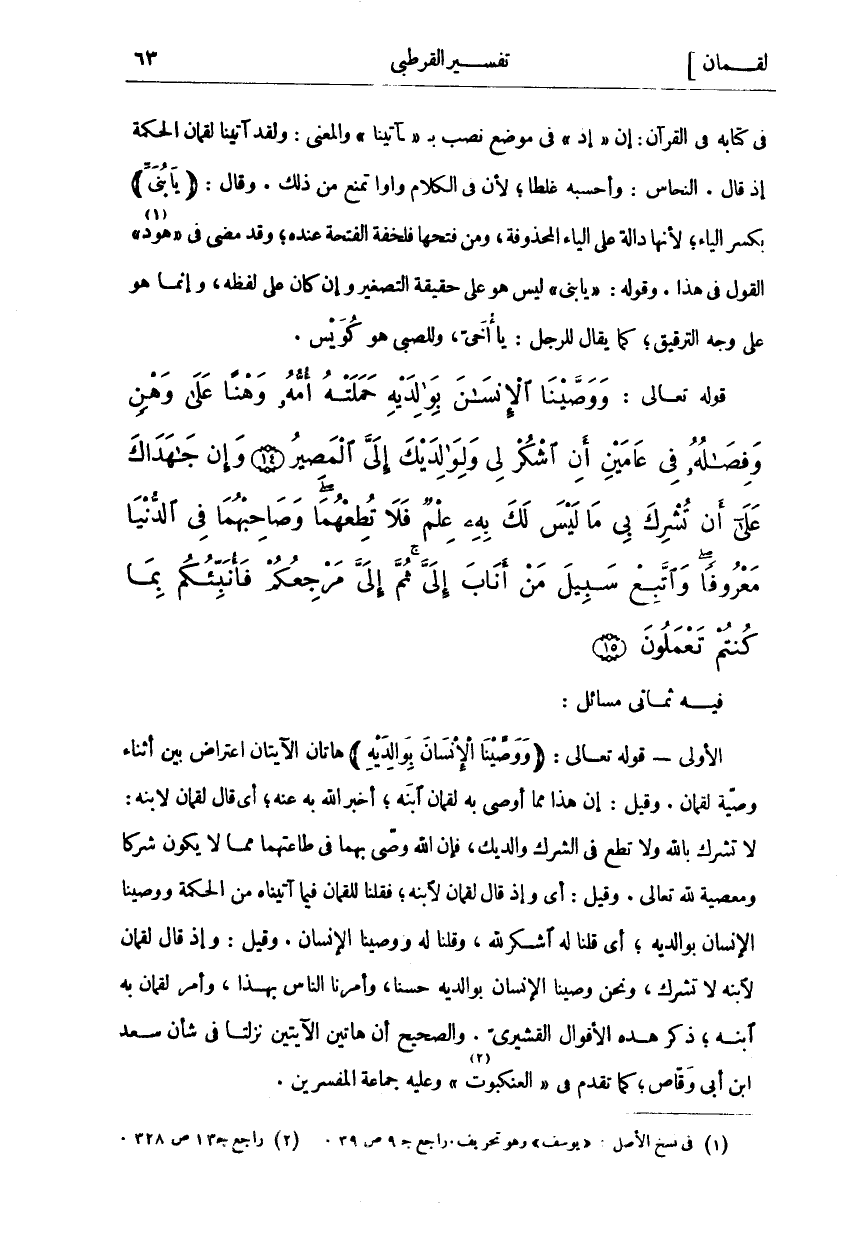 لقمان ] تفسير القرطبى ٦٣
فى كتابه فى القرآن: إن « إذ » فى موضع نصب بـ « ـآتينا » والمعنى : ولقد آتينا لقمان الحكمة
إذ قال . النحاس : وأحسبه غلطا ؛ لأن فى الكلام واوا تمنع من ذلك . وقال : ( يَا بُنَىِّ )
بكسر الياء ؛ لأنها دالة على الياء المحذوفة ، ومن فتحها فلخفة الفتحة عنده ؛ وقد مضى فى «هود» (١)
القول فى هذا . وقوله : «يابنى» ليس هو على حقيقة التصغير وإن كان على لفظه ، وإنما هو
على وجه الترقيق ؛ كما يقال للرجل : يا أُخَىّ ، وللصبى هو كُوَيْس .
قوله تعالى : وَوَصَّيْنَا ٱلْإِنسَـٰنَ بِوَٰلِدَيْهِ حَمَلَتْهُ أُمُّهُۥ وَهْنًا عَلَىٰ وَهْنٍ
وَفِصَـٰلُهُۥ فِى عَامَيْنِ أَنِ ٱشْكُرْ لِى وَلِوَٰلِدَيْكَ إِلَىَّ ٱلْمَصِيرُ ﴿١٤﴾ وَإِن جَـٰهَدَاكَ
عَلَىٰٓ أَن تُشْرِكَ بِى مَا لَيْسَ لَكَ بِهِۦ عِلْمٌ فَلَا تُطِعْهُمَا ۖ وَصَاحِبْهُمَا فِى ٱلدُّنْيَا
مَعْرُوفًا ۖ وَٱتَّبِعْ سَبِيلَ مَنْ أَنَابَ إِلَىَّ ۚ ثُمَّ إِلَىَّ مَرْجِعُكُمْ فَأُنَبِّئُكُم بِمَا
كُنتُمْ تَعْمَلُونَ ﴿١٥﴾
فيه ثمانى مسائل :
الأولى — قوله تعالى : ( وَوَصَّيْنَا الْإِنْسَانَ بِوَالِدَيْهِ ) هاتان الآيتان اعتراض بين أثناء
وصيّة لقمان . وقيل : إن هذا مما أوصى به لقمان ٱبنَه ؛ أخبر الله به عنه ؛ أى قال لقمان لابنه :
لا تشرك بالله ولا تطع فى الشرك والديك ، فإن الله وصّى بهما فى طاعتهما مما لا يكون شركا
ومعصية لله تعالى . وقيل : أى وإذ قال لقمان لٱبنه ؛ فقلنا للقمان فيما آتيناه من الحكمة ووصينا
الإنسان بوالديه ؛ أى قلنا له ٱشكر لله ، وقلنا له ووصينا الإنسان . وقيل : وإذ قال لقمان
لٱبنه لا تشرك ، ونحن وصينا الإنسان بوالديه حسنا ، وأمرنا الناس بهذا ، وأمر لقمان به
ٱبنه ؛ ذكر هذه الأقوال القشيرىّ . والصحيح أن هاتين الآيتين نزلتا فى شأن سعد
ابن أبى وَقّاص ؛ كما تقدم فى « العنكبوت » (٢) وعليه جماعة المفسرين .
(١) فى نسخ الأصل : «يوسف» وهو تحريف . راجع جـ ٩ ص ٣٩ . (٢) راجع جـ ١٣ ص ٣٢٨ .